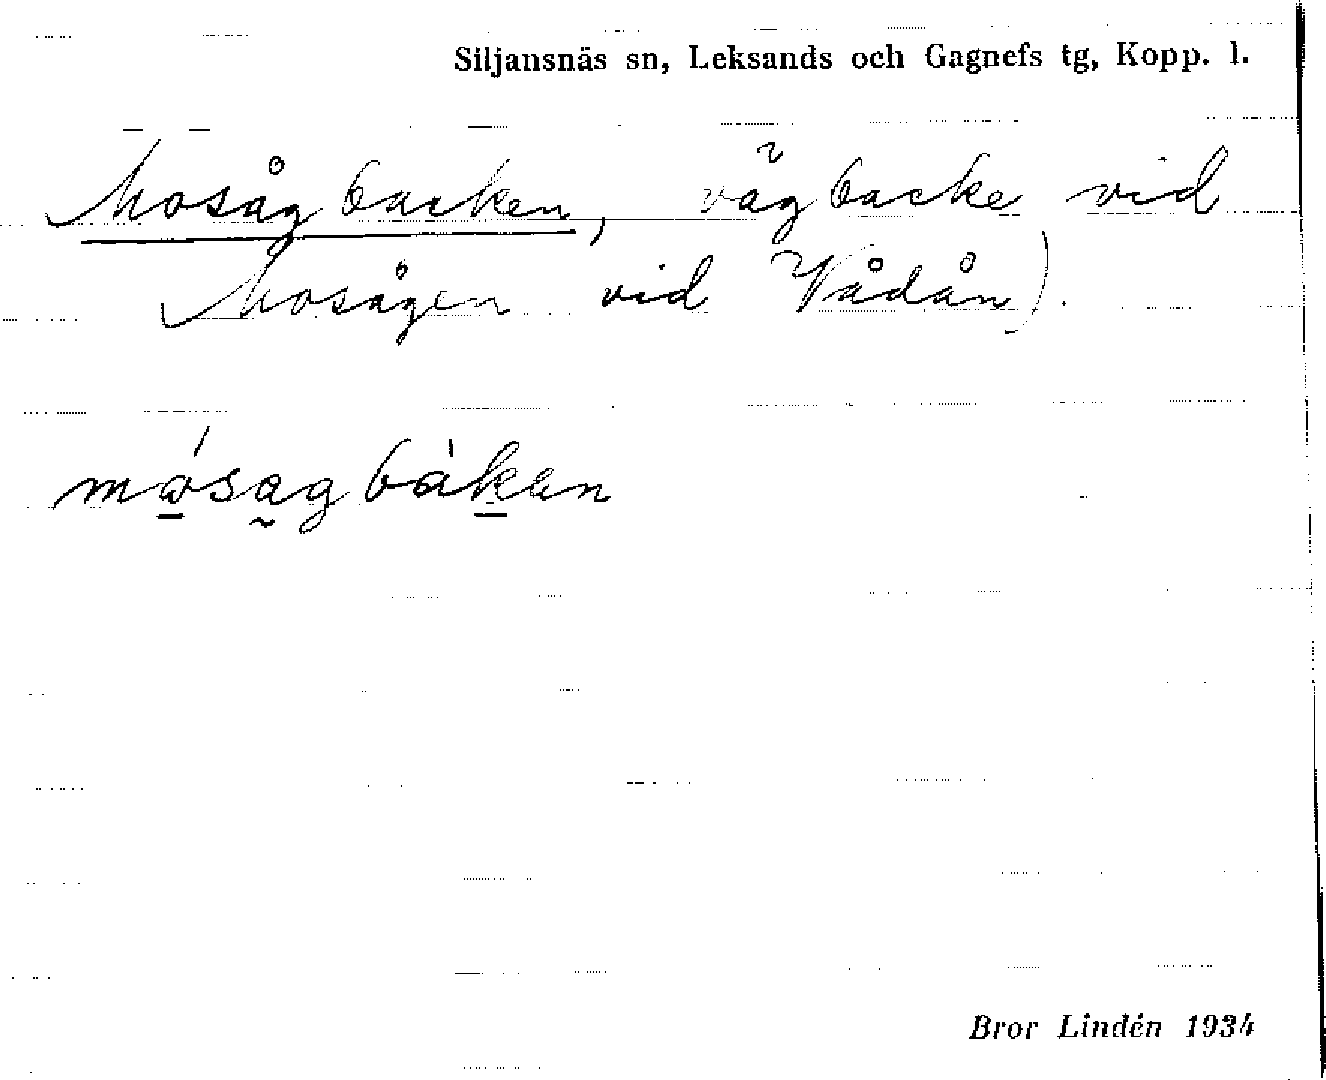 Siljansnäs sn, Leksands och Gagnefs tg, Kopp. l.
Mosågbacken, vägbacke vid
Mosågen vid Vådån).
mósagbàkan
Bror Lindén 1934